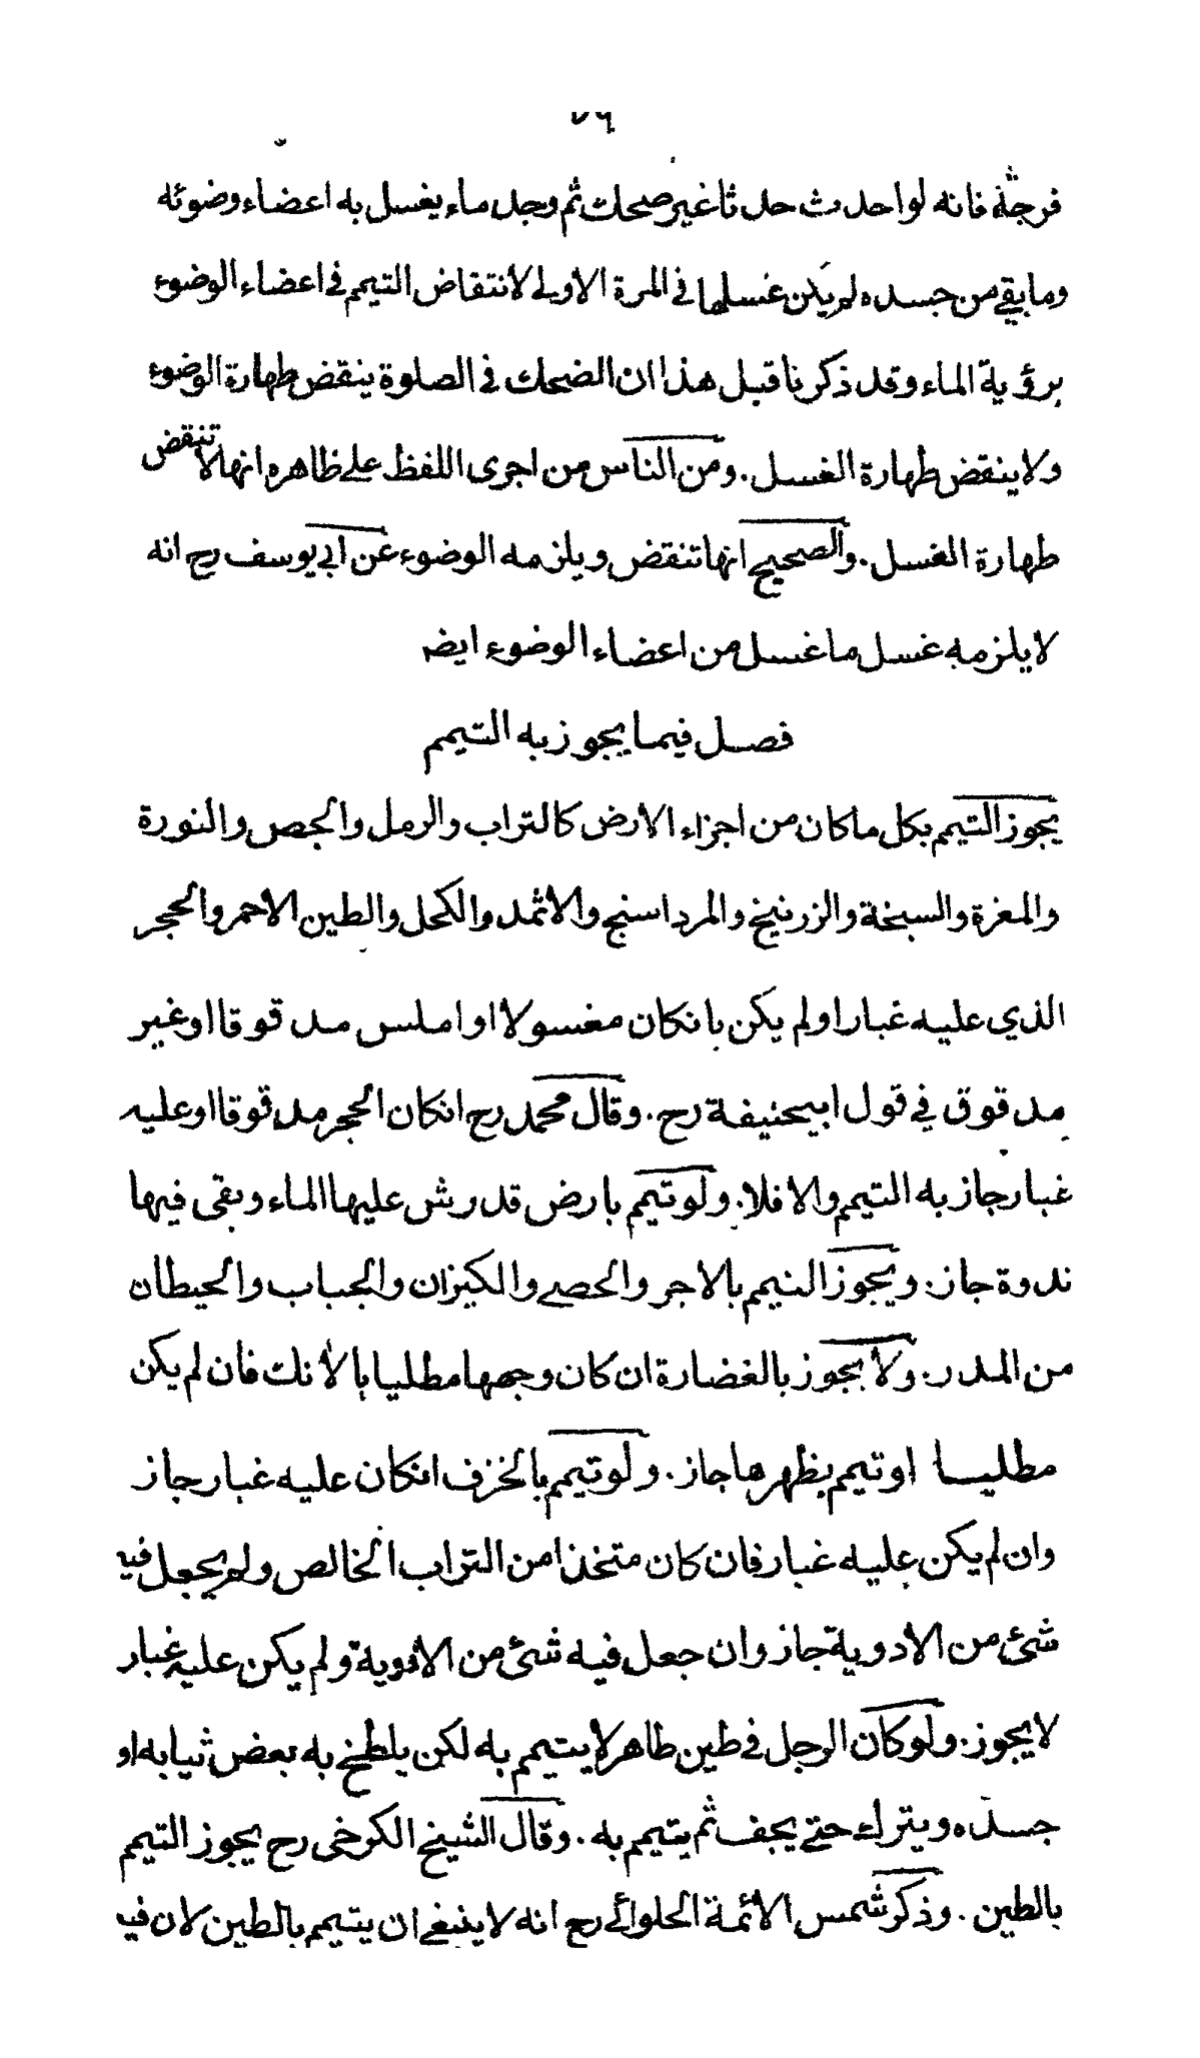 ٧٦
فرجة فانه لو احدث حدثا غير ضحك ثم وجد ماء يغسل به اعضاء وضوئه
وما بقي من جسده لم يكن غسلها في المرة الاولى لانتقاض التيمم في اعضاء الوضوء
برؤية الماء وقد ذكرنا قبل هذا ان الضحك في الصلوة ينقض طهارة الوضوء
ولا ينقض طهارة الغسل . ومن الناس من اجرى اللفظ على ظاهره انها لا تنقض
طهارة الغسل . والصحيح انها تنقض ويلزمه الوضوء عن ابي يوسف رح انه
لا يلزمه غسل ما غسل من اعضاء الوضوء ايضه
فصل فيما يجوز به التيمم
يجوز التيمم بكل ما كان من اجزاء الارض كالتراب والرمل والجص والنورة
والمغرة والسبخة والزرنيخ والمرداسنج والاثمد والكحل والطين الاحمر والحجر
الذي عليه غبار او لم يكن بانكان مغسولا او املس مدقوقا او غير
مدقوق في قول ابيحنيفة رح . وقال محمد رح انكان الحجر مدقوقا او عليه
غبار جاز به التيمم والا فلا . ولو تيمم بارض قد رش عليها الماء وبقى فيها
ندوة جاز . ويجوز التيمم بالاجر والحصى والكيزان والجباب والحيطان
من المدر . ولا يجوز بالغضارة ان كان وجهها مطليا بالأنك فان لم يكن
مطليا او تيمم بظهرها جاز . ولو تيمم بالخزف انكان عليه غبار جاز
وان لم يكن عليه غبار فان كان متخذا من التراب الخالص ولم يجعل فيه
شئ من الادوية جاز وان جعل فيه شئ من الادوية ولم يكن عليه غبار
لا يجوز . ولو كان الرجل في طين طاهر لا يتيمم به لكن يلطخ به بعض ثيابه او
جسده ويترك حتى يجف ثم يتيمم به . وقال الشيخ الكرخى رح يجوز التيمم
بالطين . وذكر شمس الائمة الحلوائي رح انه لا ينبغي ان يتيمم بالطين لان فيه